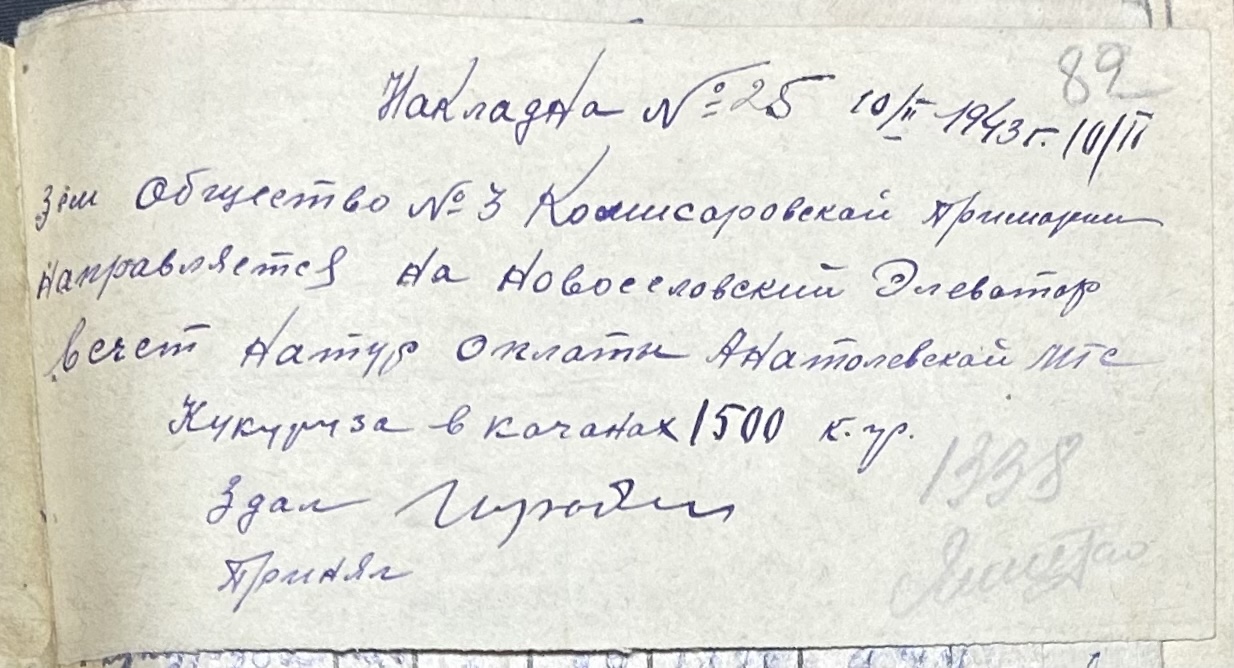 82
Накладна № 25 10/II 1943 г. 10/II
Зем Общество № 3 Комисаровской Примарии
направляется на Новоселовский Элеватор
всчет натур оплаты Анатолевской МТС
Кукуруза в качанах 1500 к.гр.
Здал
1338
Принял